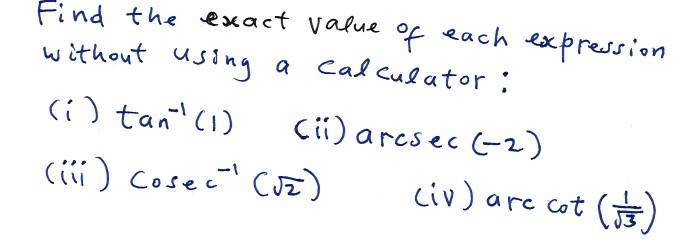 Find the exact value of each expression
without using a calculator:
(i) tan⁻¹(1) (ii) arcsec(-2)
(iii) cosec⁻¹(√2) (iv) arc cot(1/√3)